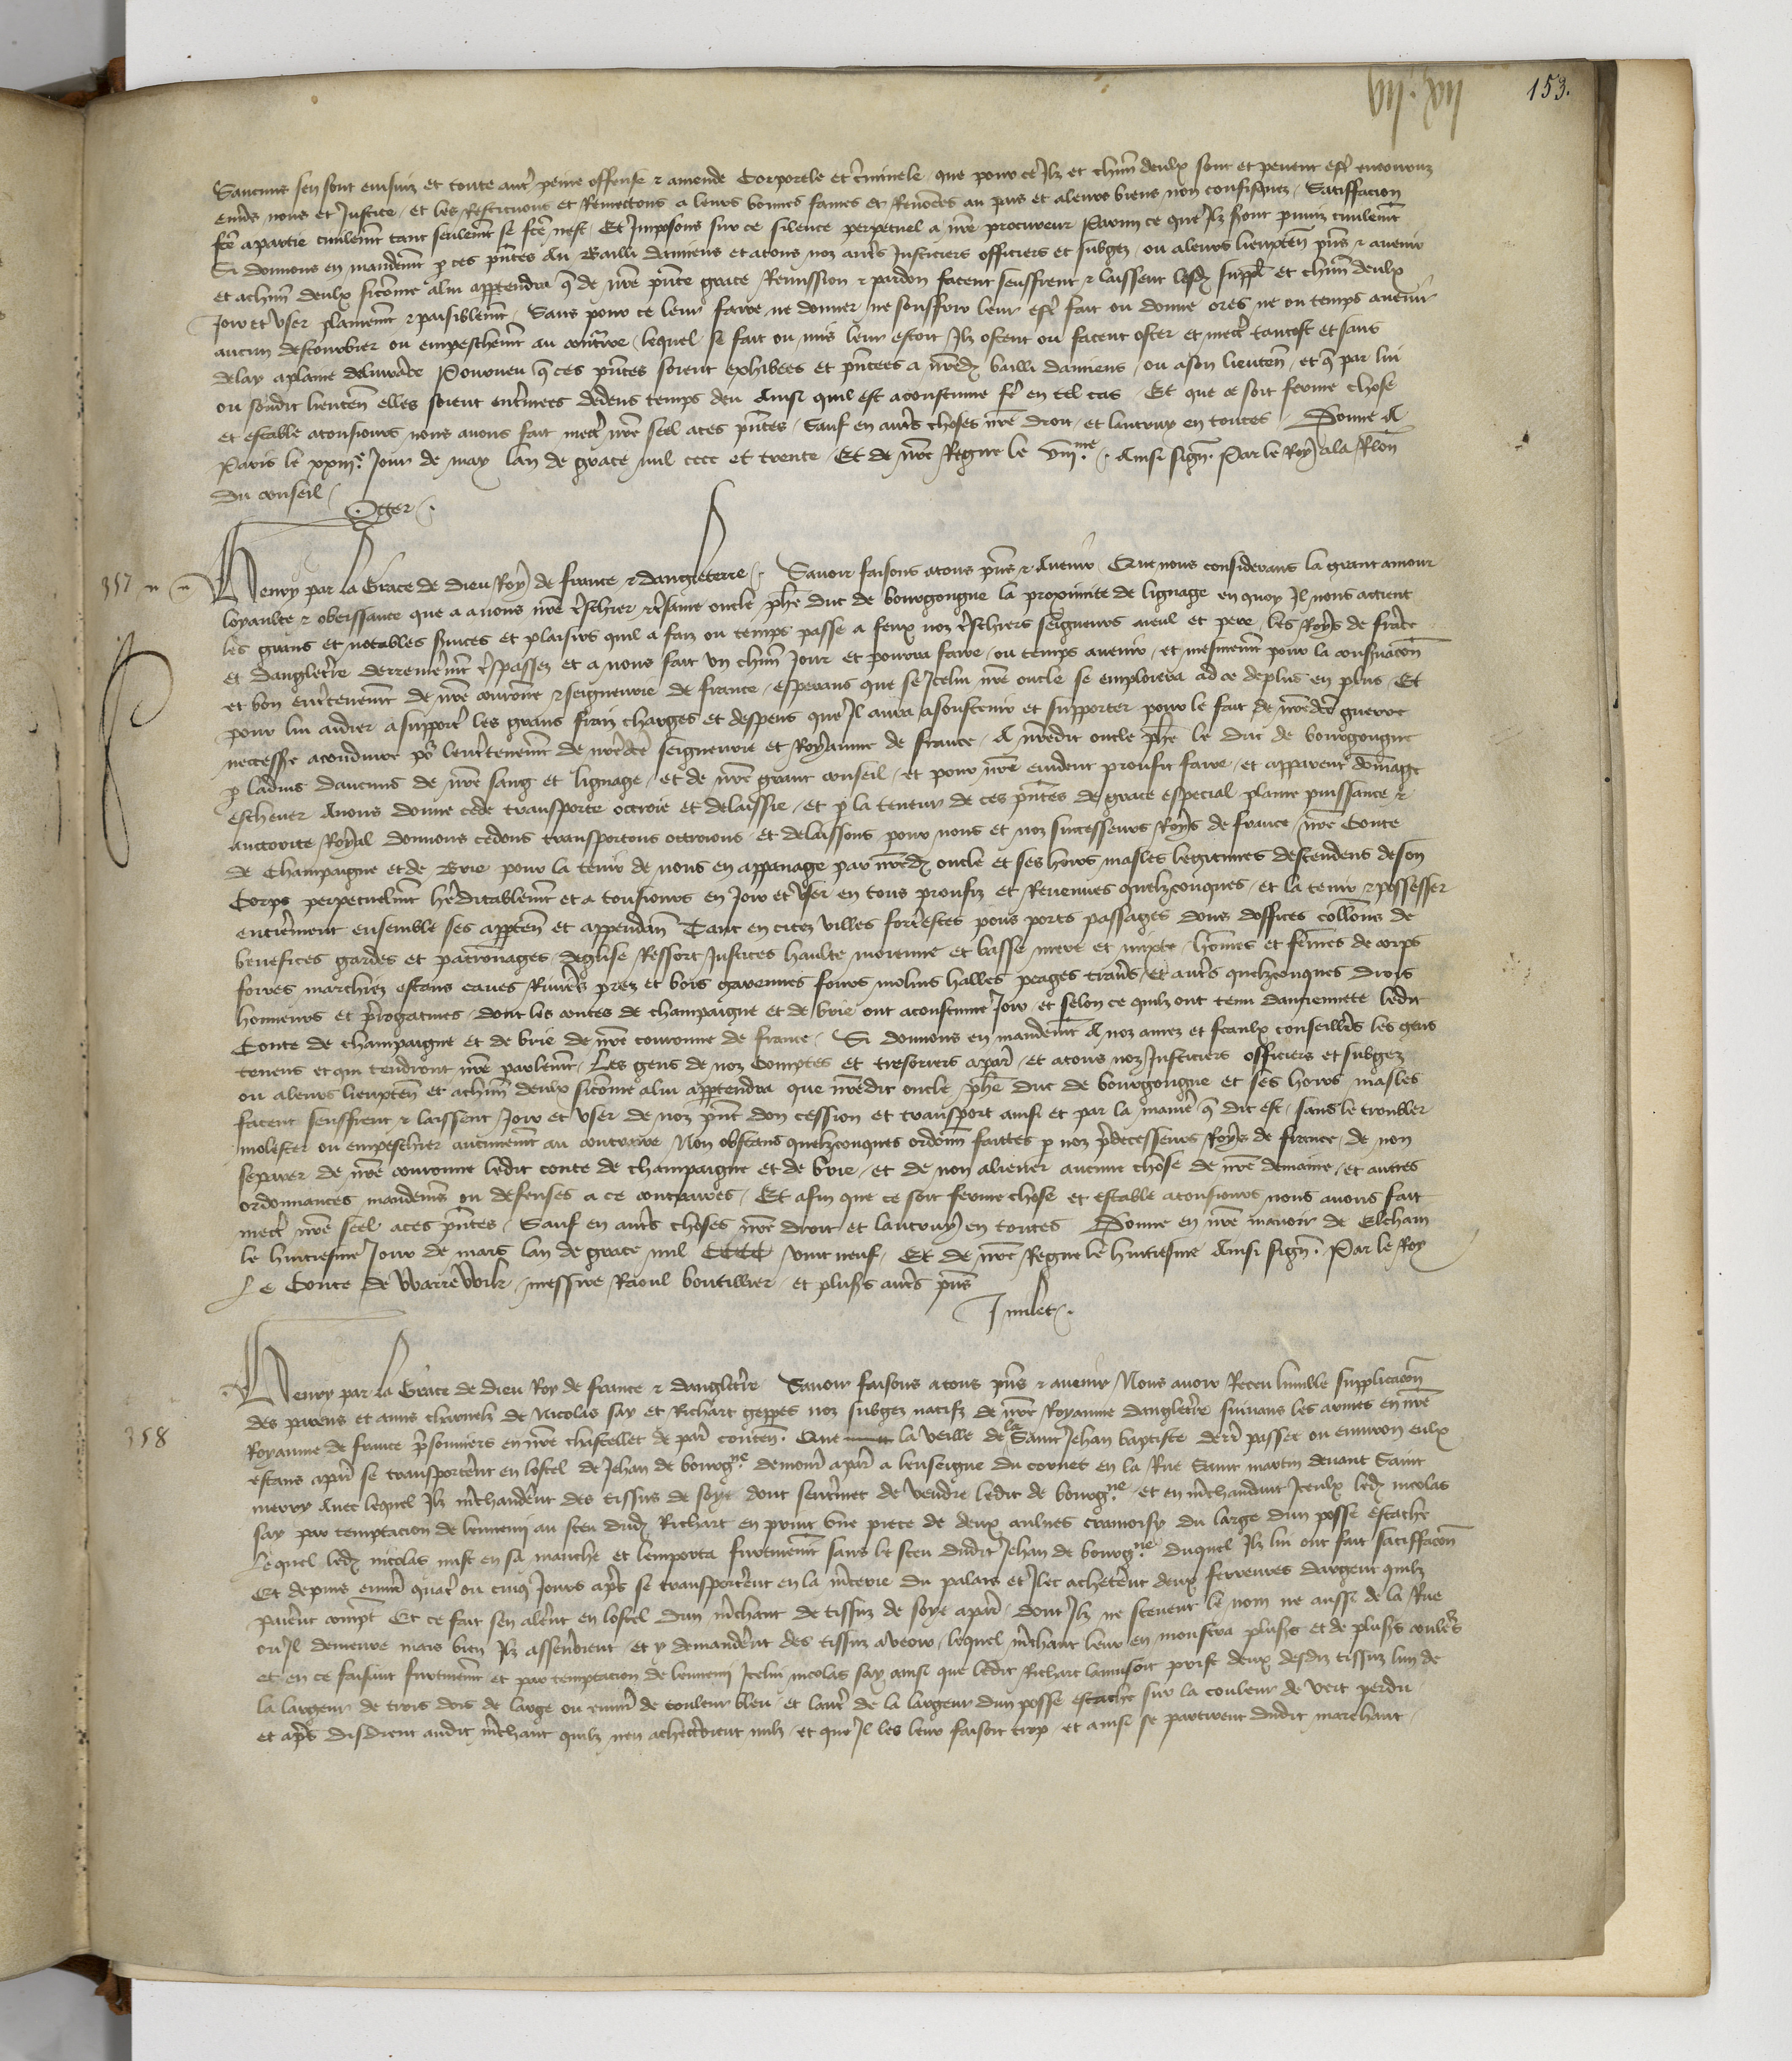 VIIxx XII
153.
Saucuns sen sont ensuiz et toute autre peine offense & amende Corporele et criminele que pour ce Ilz et chun deulx sont et pevent estre encouruz
envers nous et Justice et les Restituons et Remectons a leurs bonnes fames et Renommees au pais et aleurs biens non confisquez Satiffacion
fcte apartie civilement tant seulement se fcte nest Et Imposons sur ce silence perpetuel a nre procureur Parmi ce que Ilz seront pmiz civilement
Si donnons en mandement p ces pntes Au Bailli damiens et atous noz autres Justiciers officiers et subgez ou aleurs lieuxten pns & avenir
et achun deulx sicomme alui appartendra q de nre pnte grace Remission & pardon facent seuffrent & laissent lesd suppl et chun deulx
Joir et User plainement & paisiblement Sans pour ce leur faire ne donner ne souffrir leur estre fait ou donne ores ne ou temps avenir
aucun destourbier ou empeschement au contraire lequel se fait ou mis leur estoit Ilz ostent ou facent oster et mectre tantost et sans
delay aplaine delivrance Pourveu q ces pntes soient exhibees et pntees a nred bailli damiens ou ason lieuten et q par lui
ou sondit lieuten elles soient enterinees dedens temps deu Ainsi quil est acoustume fe en tel cas Et que ce soit ferme chose
et estable atousiours nous avons fait mectre nre seel aces pntes Sauf en autres choses nre droit et lautruy en toutes Donne A
Paris le xxiiie Jour de may lan de grace mil cccc et trente Et de nre Regne le viiime Ainsi signe Par le Roy ala Relon
du conseil
Oger
357
Henry par la Grace de dieu Roy de france & dangleterre Savoir faisons atous pns & Avenir Que nous considerans la grant amour
loyaulte & obeissance que a a nous nre treschier & tresame oncle phe duc de bourgongne la proximite de lignage en quoy Il nous actient
les grans et notables services et plaisirs quil a faiz ou temps passe a feux noz treschiers seigneurs aieul et pere les Roys de france
et dangleterre derrenierement trespassez et a nous fait un chun Jour et pourra faire ou temps avenir et mesmement pour la conservacion
et bon entretenement de nre couronne & seigneurie de france esperans que se Icelui nre oncle se emploiera ad ce deplus en plus Et
pour lui aidier a supporter les grans fraiz charges et despens que Il aura asoustenir et supporter pour le fait de nredce guerre
necesse aconduire pour lentretenement de nredce seigneurie et Royaume de france A nredit oncle phe le duc de bourgongne
p ladvis daucuns de nre sang et lignage et de nre grant conseil et pour nre evident proufit faire et apparent dommage
eschever Avons donne cede transporte octroie et delaissie et p la teneur de ces pntes de grace especial plaine puissance &
auctorite Royal donnons cedons transportons octroions et delaissons pour nous et noz successeurs Roys de france nre Conte
de Champaigne et de Brie pour la tenir de nous en appanage par nred oncle et ses hoirs masles legitimes descendens de son
Corps perpetuelment heritablement et a tousiours en Joir et User en tous proufiz et Revenues quelzconques et la tenir & possesser
entierement ensemble ses apparten et appendan Tant en citez villes forterestes pons ports passages dons doffices collons de
benefices gardes et patronages deglise Ressort Justices haulte moienne et basse mere et mixte hommes et femmes de corps
foires marchiez estans eaues Rivieres prez et bois garennes fours molins halles peages travers et autres quelzconques drois
honneurs et prerogatives dont les contes de champaigne et de brie ont acoustume Joir et selon ce quilz ont tenu danciennete ledit
Conte de champaigne et de brie de nre couronne de france Si donnons en mandement A noz amez et feaulx conseilliers les gens
tenens et qui tendront nre parlement Les gens de noz comptes et tresoriers apar et atous noz Justiciers officiers et subgez
ou aleurs lieuxten et achun deulx sicomme alui appartendra que nredit oncle phe duc de bourgongne et ses hoirs masles
facent seuffrent & laissent Joir et user de noz pnt don cession et transport ainsi et par la maniere q dit est sans le troubler
molester ou empeschier aucunement au contraire Non obstans quelzconques ordonn faittes p noz predecesseurs Roys de france de non
separer de nre couronne ledit conte de champaigne et de brie et de non aliener aucune chose de nre demaine et autres
ordonnances mandemens ou defenses a ce contraires Et afin que ce soit ferme chose et estable atousiours nous avons fait
mectre nre seel aces pntes Sauf en autres choses nre droit et lautruy en toutes Donne en nre manoir de Eltham
le huitiesme Jour de mars lan de grace mil CCCC vint neuf Et de nre Regne le huitiesme Ainsi signe Par le Roy
Le Conte de Warrewik messire Raoul boutillier et pluss autres pns
Milet
358
Henry par la Grace de dieu Roy de france & dangleterre Savoir faisons atous pns & avenir Nous avoir Receu lumble supplicacion
des parens et amis charnelz de Nicolas say et Richart geppes noz subgez natifz de nre Royaume dangleterre suivans les armes en nre
Royaume de france prisonniers en nre chastellet de par conten Que la veille de la Saint Jehan baptiste derr passee ou environ eulx
estans apar se transporterent en lostel de Jehan de bourgne demour apar a lenseigne du cornet en la Rue Saint martin devant Saint
merry Avec lequel Ilz mchanderent des tissus de soye dont sentremet de vendre ledit de bourgne et en mchandant Iceulx led nicolas
say par temptacion de lennemi au sceu dud Richart en print une piece de deux aulnes cramoisy du large dun posse estache
Lequel led nicolas mist en sa manche et lemporta furtivement sans le sceu dudit Jehan de bourgne Duquel Ilz lui ont fait satiffacion
Et depuis envir quatre ou cinq Jours apres se transporterent en la mcerie du palais et Ilec acheterent deux ferreures dargent quilz
paierent compt Et ce fait sen alerent en lostel dun mchant de tissuz de soye apar dont Ilz ne scevent le nom ne aussi de la Rue
ou Il demeure mais bien Ilz assenroient et y demanderent des tissuz aveoir lequel mchant leur en monstra pluss et de pluss couleurs
et en ce faisant furtivement et par temptacion de lennemi Icelui nicolas say ainsi que ledit Richart lamusoit prist deux desdiz tissuz lun de
la largeur de trois dois de large ou envir de couleur bleu et lautre de la largeur dun posse estache sur la couleur de vert perdu
et apres disdrent audit mchant quilz nen acheteroient nulz et que Il les leur faisoit trop et ainsi se partirent dudit marchant